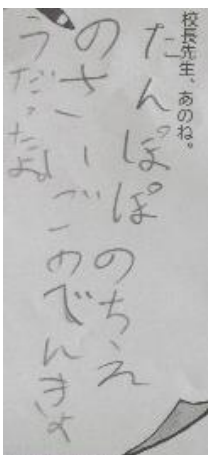 校長先生、あのね。
たんぽぽのちえ
のさいごのてんきよ
うだったよ。